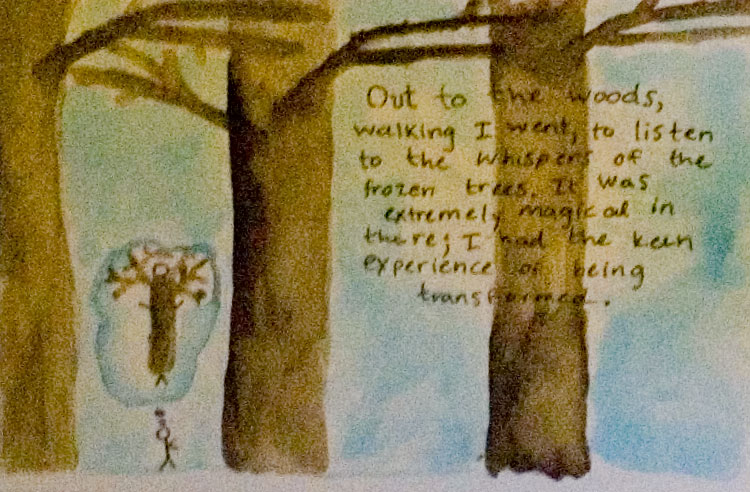 Out to the woods,
walking I went, to listen
to the whispers of the
frozen trees. It was
extremely magical in
there; I had the keen
experience of being
transformed.